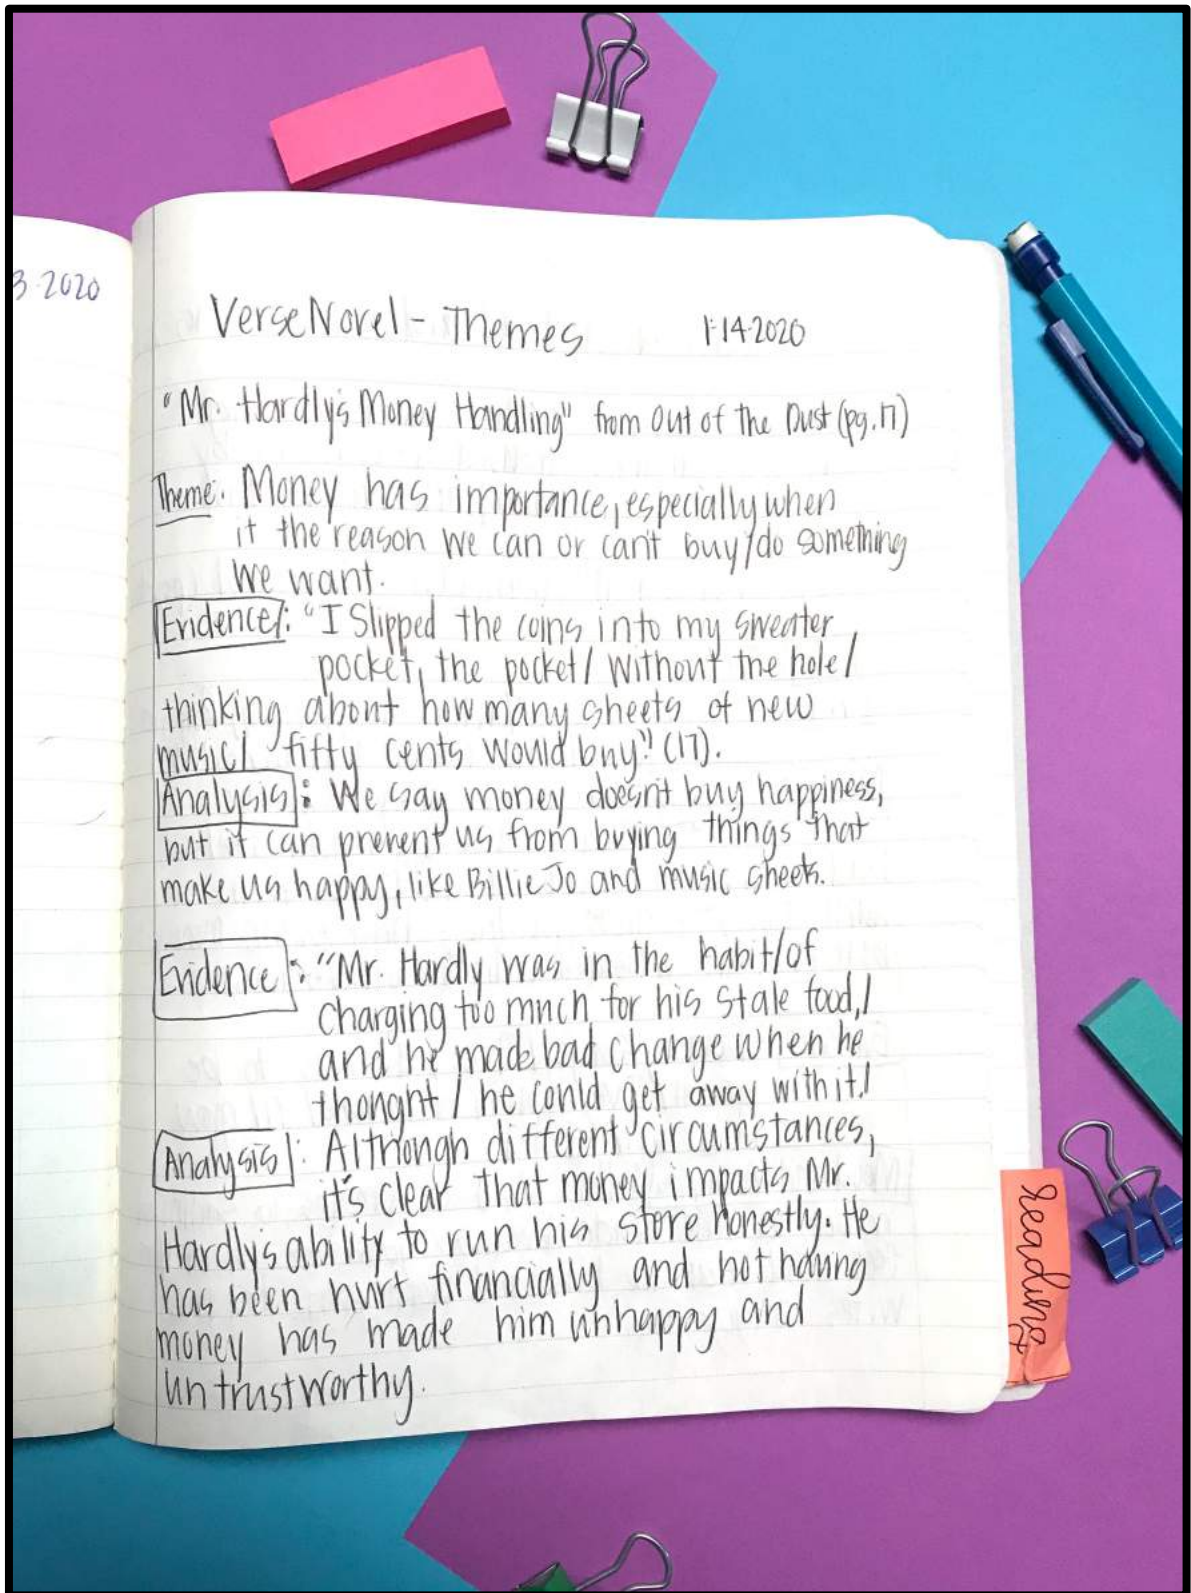 3·2020
Verse Novel - Themes 1·14·2020
"Mr. Hardly's Money Handling" from Out of the Dust (pg. 17)
Theme: Money has importance, especially when
it the reason we can or can't buy/do something
we want.
Evidence: "I slipped the coins into my sweater
pocket, the pocket/ without the hole/
thinking about how many sheets of new
music/ fifty cents would buy" (17).
Analysis: We say money doesn't buy happiness,
but it can prevent us from buying things that
make us happy, like Billie Jo and music sheets.
Evidence: "Mr. Hardly was in the habit/of
charging too much for his stale food,/
and he made bad change when he
thought / he could get away with it./
Analysis: Although different circumstances,
it's clear that money impacts Mr.
Hardly's ability to run his store honestly. He
has been hurt financially and not having
money has made him unhappy and
untrustworthy.
reading